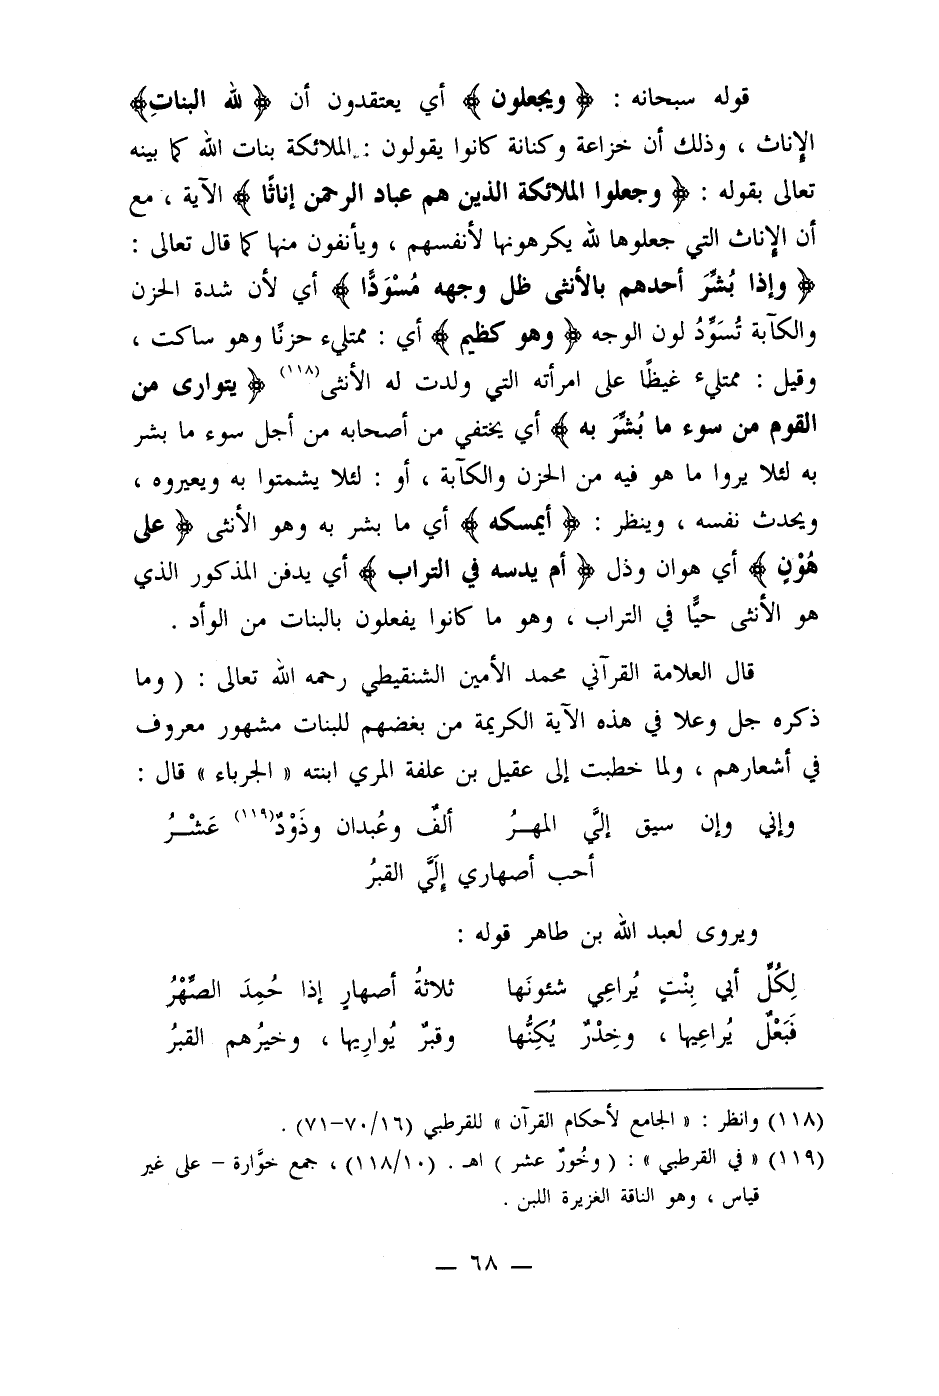 قوله سبحانه : ﴿ ويجعلون ﴾ أي يعتقدون أن ﴿ لله البناتِ﴾
الإناث ، وذلك أن خزاعة وكنانة كانوا يقولون : الملائكة بنات الله كما بينه
تعالى بقوله : ﴿ وجعلوا الملائكة الذين هم عباد الرحمن إناثًا ﴾ الآية ، مع
أن الإناث التي جعلوها لله يكرهونها لأنفسهم ، ويأنفون منها كما قال تعالى :
﴿ وإذا بُشِّرَ أحدهم بالأنثى ظل وجهه مُسْوَدًّا ﴾ أي لأن شدة الحزن
والكآبة تُسَوِّدُ لون الوجه ﴿ وهو كظيم ﴾ أي : ممتليء حزنًا وهو ساكت ،
وقيل : ممتليء غيظًا على امرأته التي ولدت له الأنثى(١١٨) ﴿ يتوارى من
القوم من سوء ما بُشِّرَ به ﴾ أي يختفي من أصحابه من أجل سوء ما بشر
به لئلا يروا ما هو فيه من الحزن والكآبة ، أو : لئلا يشمتوا به ويعيروه ،
ويحدث نفسه ، وينظر : ﴿ أيمسكه ﴾ أي ما بشر به وهو الأنثى ﴿ على
هُوْنٍ ﴾ أي هوان وذل ﴿ أم يدسه في التراب ﴾ أي يدفن المذكور الذي
هو الأنثى حيًّا في التراب ، وهو ما كانوا يفعلون بالبنات من الوأد .
قال العلامة القرآني محمد الأمين الشنقيطي رحمه الله تعالى : ( وما
ذكره جل وعلا في هذه الآية الكريمة من بغضهم للبنات مشهور معروف
في أشعارهم ، ولما خطبت إلى عقيل بن علفة المري ابنته « الجرباء » قال :
وإني وإن سيق إليَّ المهـرُ ألفٌ وعُبدان وذَوْدٌ(١١٩) عَشْـرُ
أحب أصهاري إلَيَّ القبرُ
ويروى لعبد الله بن طاهر قوله :
لِكُلِّ أبي بِنْتٍ يُراعِي شئونَها ثلاثةُ أصهارٍ إذا حُمِدَ الصِّهْرُ
فَبَعْلٌ يُراعِيها ، وخِدْرٌ يُكِنُّها وقبرٌ يُوارِيها ، وخيرُهم القبرُ
(١١٨) وانظر : « الجامع لأحكام القرآن » للقرطبي (٧٠/١٦-٧١) .
(١١٩) « في القرطبي » : ( وخُورٌ عشر ) اهـ . (١١٨/١٠) ، جمع خوَّارة – على غير
قياس ، وهو الناقة الغزيرة اللبن .
— ٦٨ —